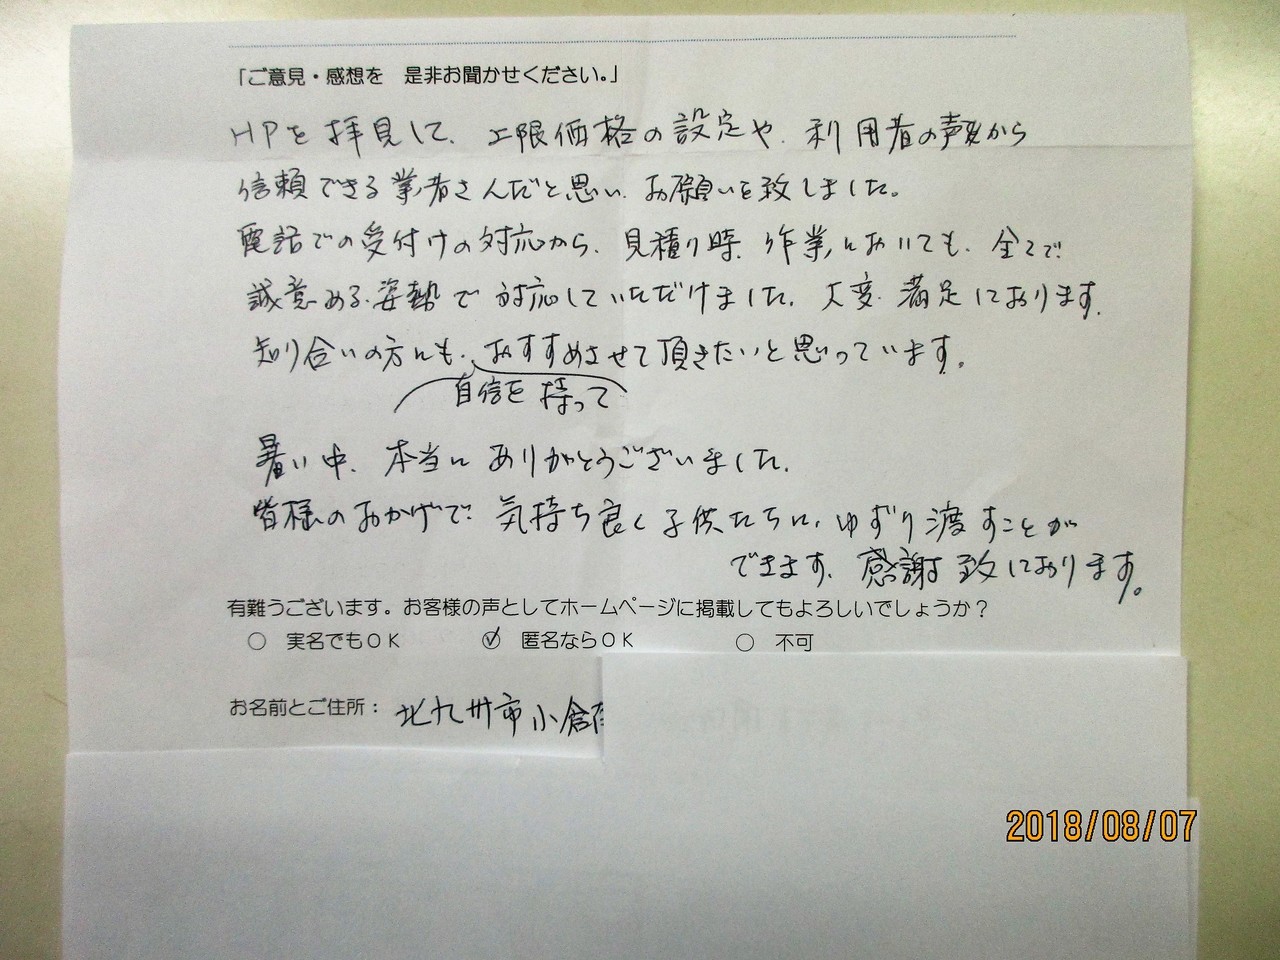 「ご意見・感想を 是非お聞かせください。」
HPを拝見して、上限価格の設定や、利用者の声から
信頼できる業者さんだと思い、お願いを致しました。
電話での受付けの対応から、見積り時、作業においても、全てで
誠意ある姿勢で対応していただけました。大変満足しております。
知り合いの方にも、おすすめさせて頂きたいと思っています。
自信を持って
暑い中、本当にありがとうございました。
皆様のおかげで、気持ち良く子供たちに、ゆずり渡すことが
できます。感謝致しております。
有難うございます。お客様の声としてホームページに掲載してもよろしいでしょうか？
○ 実名でもOK ✓ 匿名ならOK ○ 不可
お名前とご住所： 北九州市小倉
2018/08/07